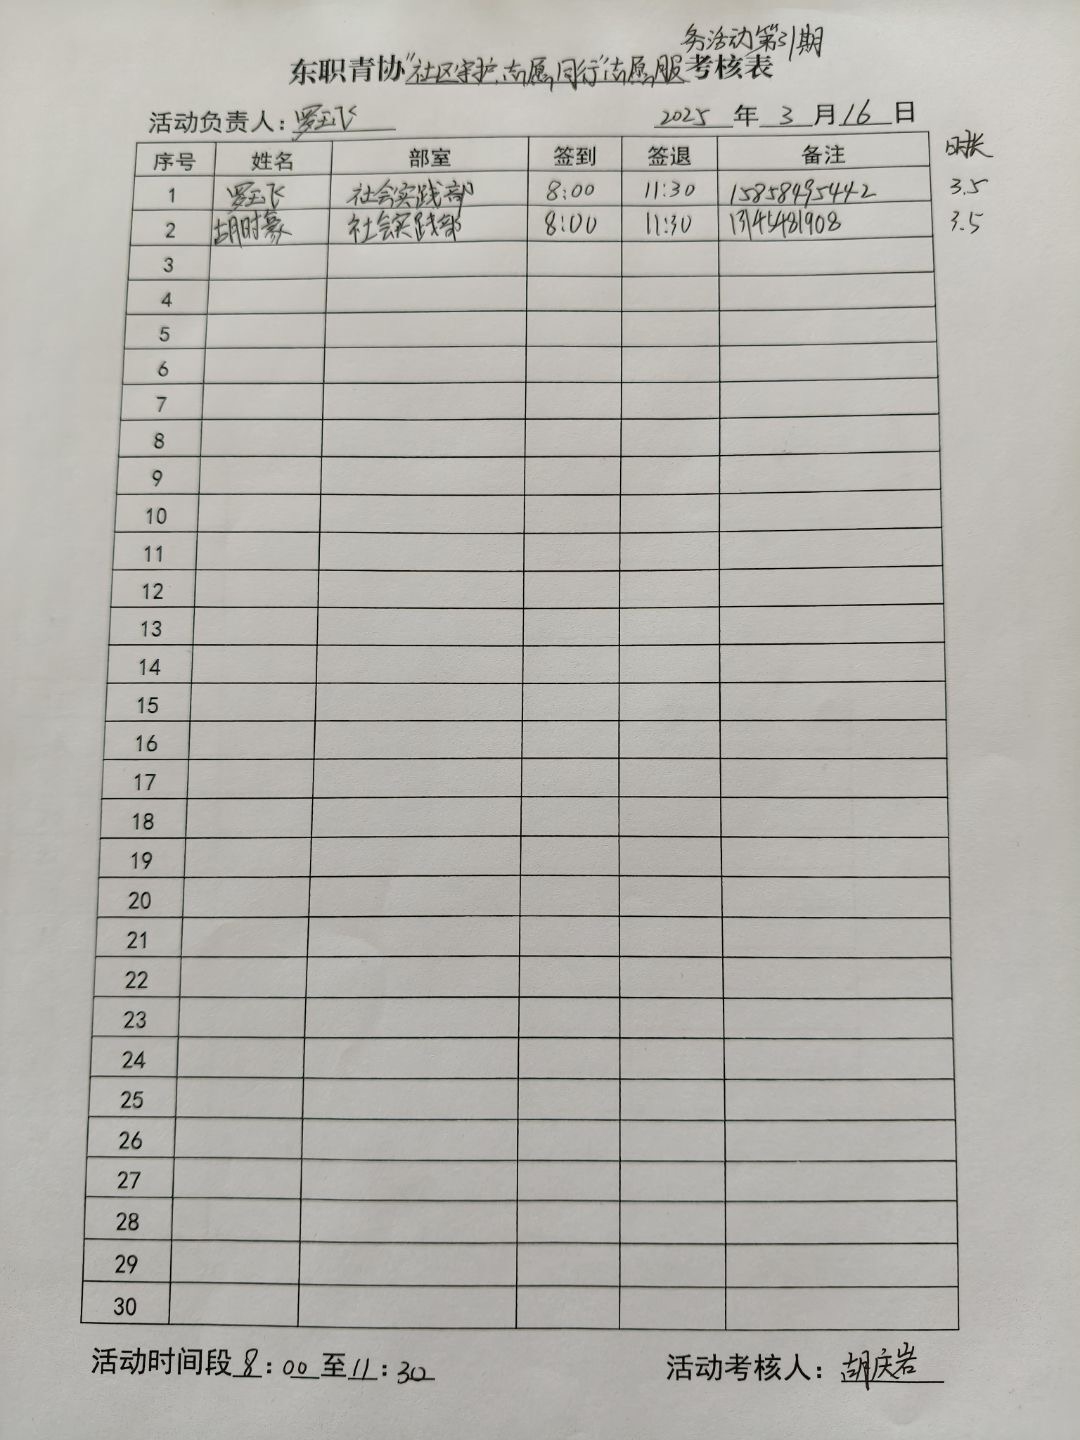 务活动第31期
东职青协"社区守护,志愿同行"志愿服考核表
活动负责人：罗玉飞 2025年3月16日
序号 姓名 部室 签到 签退 备注 时长
1 罗玉飞 社会实践部 8:00 11:30 15858495442 3.5
2 胡时豪 社会实践部 8:00 11:30 13145481908 3.5
3
4
5
6
7
8
9
10
11
12
13
14
15
16
17
18
19
20
21
22
23
24
25
26
27
28
29
30
活动时间段8:00至11:30 活动考核人：胡庆岩